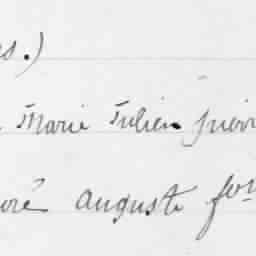 s.)
Marie Julien pierr
oré auguste fon